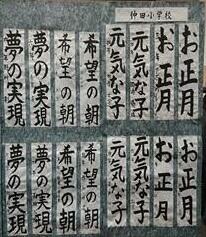 仲田小学校
お正月
お正月
元気な子
元気な子
希望の朝
希望の朝
夢の実現
夢の実現
お正月
お正月
元気な子
元気な子
希望の朝
希望の朝
夢の実現
夢の実現